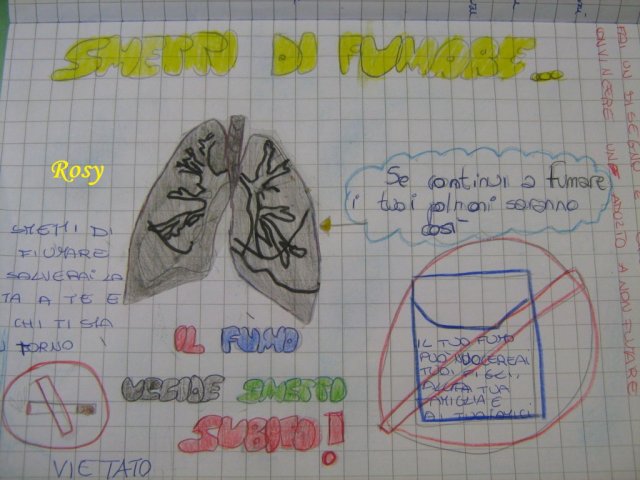 SMETTI DI FUMARE...
FAI UN DISEGNO E
CONVINCERE UN ADULTO A NON FUMARE
Rosy
Se continui a fumare
i tuoi polmoni saranno
così
SMETTI DI
FUMARE
SALVERAI LA
TA A TE E
CHI TI STA
TORNO
IL FUMO
UCCIDE SMETTO
SUBITO!
IL TUO FUMO
PUÒ NUOCERE AI
TUOI FIGLI,
ALLA TUA
FAMIGLIA E
AI TUOI AMICI
VIETATO